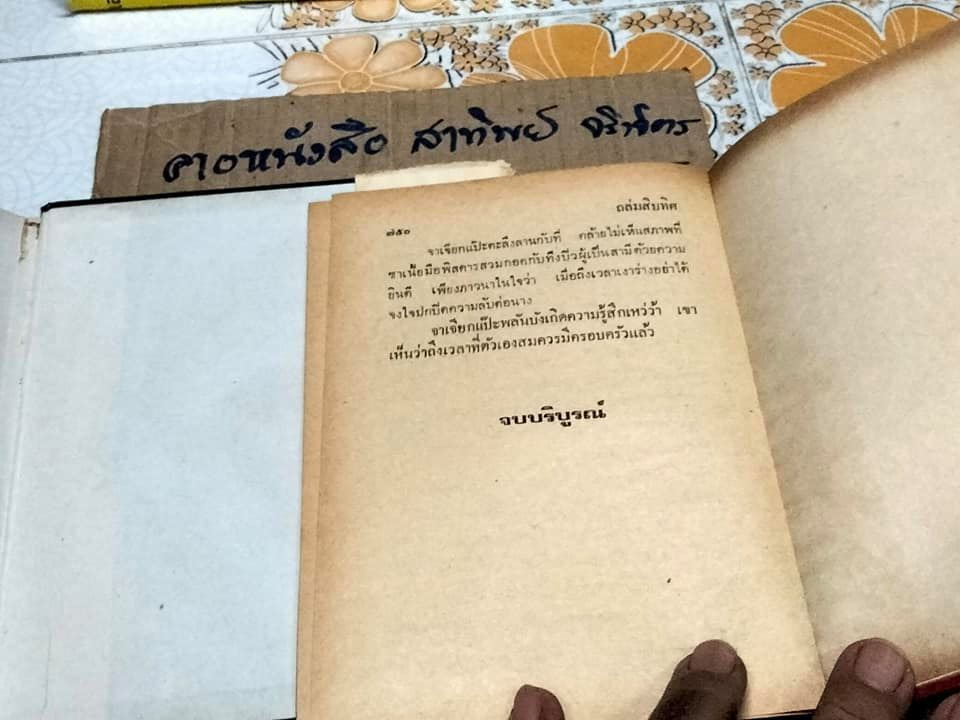 ขายหนังสือ สาทิพย์
๗๕๐
ถล่มสิบทิศ
จาเจียกแป๊ะตะลึงลานกับที่ คล้ายไม่เห็นสภาพที่
ซาเนื้อมือพิสดารสวมกอดกับทึงบิวผู้เป็นสามีด้วยความ
ยินดี เพียงภาวนาในใจว่า เมื่อถึงเวลาเงาร่างอย่าได้
จงใจปกปิดความลับต่อนาง
จาเจียกแป๊ะพลันบังเกิดความรู้สึกเหว่ว้า เขา
เห็นว่าถึงเวลาที่ตัวเองสมควรมีครอบครัวแล้ว
จบบริบูรณ์